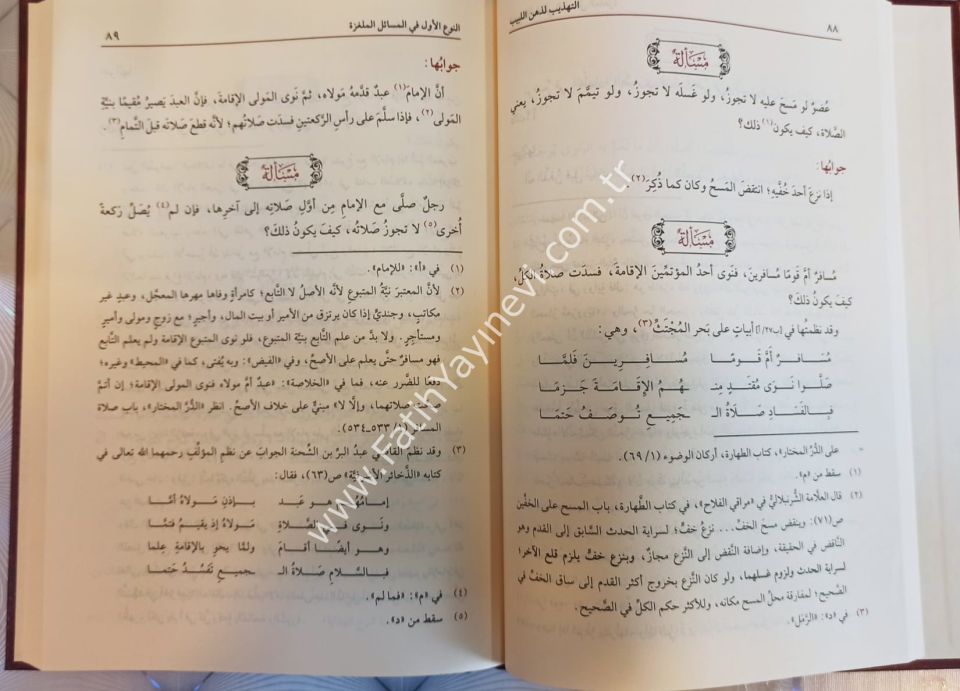 ٨٨
التهذيب لذهن اللبيب
مَسْأَلَةٌ
عُضوٌ لو مَسحَ عليه لا تجوزُ، ولو غَسلَه لا تجوزُ، ولو تيمَّمَ لا تجوزُ، يعني
الصَّلاة، كيف يكون(١) ذلك؟
جوابُها:
إذا نزعَ أحدَ خُفَّيهِ؛ انتقضَ المَسحُ وكان كما ذُكِرَ(٢).
مَسْأَلَةٌ
مُسافرٌ أمَّ قومًا مُسافرينَ، فنَوى أحدُ المؤتمِّينَ الإقامةَ، فسدَت صلاةُ الكلِّ،
كيفَ يكونُ ذلكَ؟
وقد نظمتُها في [ب/٢٧/أ] أبياتٍ على بَحر المُجْتَثِّ(٣)، وهي:
مُسَافرٌ أمَّ قَومًا مُسافِرينَ فَلمَّا
صَلَّوا نَوى مُقتَدٍ مِنـ ـهُمُ الإقامَةَ جَزمًا
فبِالفَسادِ صَلاةُ الـ ـجَميعِ تُوصَفُ حَتمَا
على الدُّرِّ المختار»، كتاب الطهارة، أركان الوضوء (١/ ٦٩).
(١) سقط من «م».
(٢) قال العلَّامة الشُّرنبلاليُّ في «مراقي الفلاح»، في كتاب الطَّهارة، باب المسح على الخفَّين
ص(٧١): وينقض مسحَ الخفِّ... نزعُ خفٍّ؛ لسراية الحدث السَّابق إلى القدم وهو
النَّاقض في الحقيقة، وإضافة النَّقض إلى النَّزع مجازٌ، وبنزع خفٍّ يلزم قلع الآخر؛
لسراية الحدث ولزوم غسلهما، ولو كان النَّزعُ بخروج أكثر القدم إلى ساق الخفِّ في
الصَّحيح؛ لمفارقة محلِّ المسح مكانَه، وللأكثر حكم الكلِّ في الصَّحيح.
(٣) في «د»: «الرَّمَل».
النوع الأول في المسائل الملغزة
٨٩
جوابُها:
أنَّ الإمامَ(١) عبدٌ قدَّمهُ مَولاه، ثمَّ نَوى المَولى الإقامةَ، فإنَّ العبدَ يَصيرُ مُقيمًا بنيَّةِ
المَولى(٢)، فإذا سلَّمَ على رأسِ الرَّكعتينِ فسدَت صلاتُهم؛ لأنَّه قطعَ صَلاتَه قبلَ التَّمامِ(٣).
مَسْأَلَةٌ
رجلٌ صلَّى مع الإمامِ مِن أوَّلِ صَلاتِه إلى آخرِها، فإن لم(٤) يُصَلِّ رَكعةً
أُخرى(٥) لا تجوزُ صَلاتُه، كيفَ يكونُ ذلكَ؟
(١) في «أ»: «للإمام».
(٢) لأنَّ المعتبرَ نيَّةُ المتبوعِ لأنَّه الأصلُ لا التَّابع؛ كامرأةٍ وفاها مهرها المعجَّل، وعبدٍ غير
مكاتبٍ، وجنديٍّ إذا كان يرتزق من الأمير أو بيت المال، وأجيرٍ؛ مع زوجٍ ومولى وأميرٍ
ومستأجِرٍ. ولا بدَّ من علم التَّابع بنيَّة المتبوع، فلو نوى المتبوع الإقامة ولم يعلم التَّابع
فهو مسافرٌ حتَّى يعلم على الأصحِّ، وفي «الفيض»: «وبه يُفتى، كما في «المحيط» وغيره؛
دفعًا للضَّرر عنه، فما في «الخلاصة»: «عبدٌ أمَّ مولاه فنوى المولى الإقامة؛ إن أتمَّ
صحَّت صلاتهما، وإلَّا لا» مبنيٌّ على خلاف الأصحِّ. انظر «الدُّرَّ المختار»، باب صلاة
المسافر (١/ ٥٣٣ـ٥٣٤).
(٣) وقد نظم القاضي عبدُ البرِّ بن الشِّحنة الجوابَ عن نظم المؤلِّف رحمهما الله تعالى في
كتابه «الذَّخائر الأشرفيَّة» ص(٦٣)، فقال:
إمامُهُم هو عَبدٌ بإذنِ مَولاهُ أمَّا
ونَوى في الصَّلاةِ مَولاهُ إذ يقيمُ فتمَّا
وهو أيضًا أقامَ ولمَّا يحوِ بالإقامةِ علما
فبالسَّلامِ صَلاةُ الـ ـجميعِ تَفسُدُ حَتما
(٤) في «م»: «فما لم».
(٥) سقط من «د».
www.FatihYayinevi.com.tr